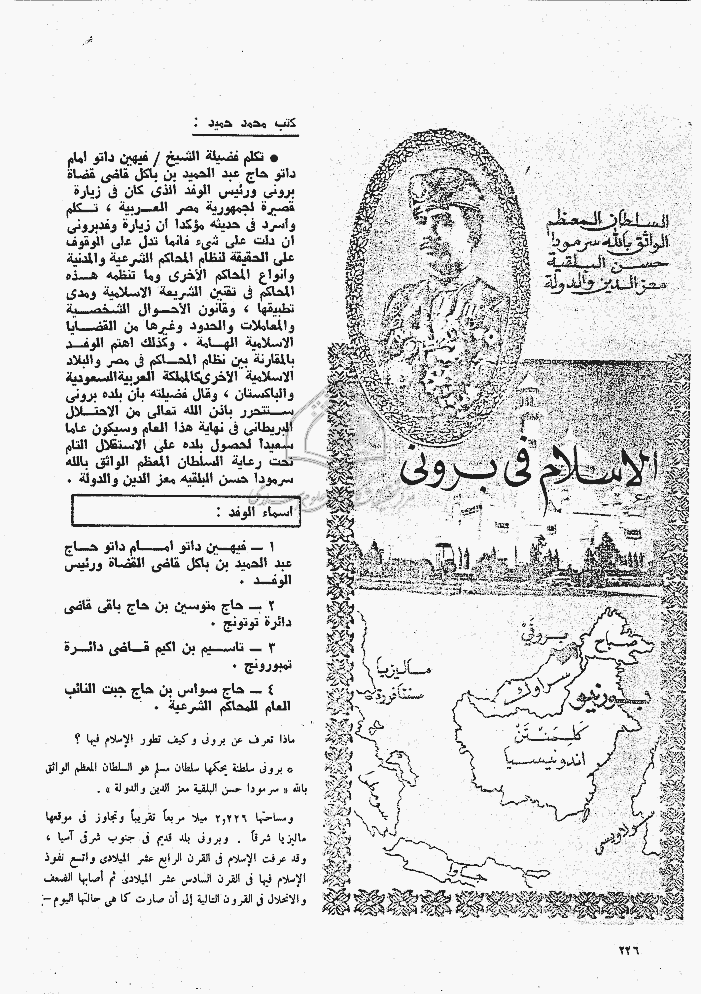 السلطان المعظم
الواثق بالله سرمودا
حسن البلقية
معز الدين والدولة
الاسلام فى برونى
صباح
برونى
سراواك
ماليزيا
سنغافورة
بورنيو
كلمنتن
اندونيسيا
سومطرا
سولاويسى
جاوا
كتب محمد حميد :
● تكلم فضيلة الشيخ / فيهين داتو امام
داتو حاج عبد الحميد بن باكل قاضى قضاة
برونى ورئيس الوفد الذى كان فى زيارة
قصيرة لجمهورية مصر العربية ، تكلم
واسرد فى حديثه مؤكدا ان زيارة وفدبرونى
ان دلت على شىء فانما تدل على الوقوف
على الحقيقة لنظام المحاكم الشرعية والمدنية
وانواع المحاكم الأخرى وما تنظمه هذه
المحاكم فى تقنين الشريعة الاسلامية ومدى
تطبيقها ، وقانون الأحوال الشخصية
والمعاملات والحدود وغيرها من القضايا
الاسلامية الهامة . وكذلك اهتم الوفد
بالمقارنة بين نظام المحاكم فى مصر والبلاد
الاسلامية الأخرى كالمملكة العربية السعودية
والباكستان ، وقال فضيلته بأن بلده برونى
ستتحرر باذن الله تعالى من الاحتلال
البريطانى فى نهاية هذا العام وسيكون عاما
سعيدا لحصول بلده على الاستقلال التام
تحت رعاية السلطان المعظم الواثق بالله
سرمودا حسن البلقيه معز الدين والدولة .
اسماء الوفد :
١ – فيهين داتو امام داتو حاج
عبد الحميد بن باكل قاضى القضاة ورئيس
الوفد .
٢ – حاج متوسين بن حاج باقى قاضى
دائرة توتونج .
٣ – تاسيم بن اكيم قاضى دائرة
تمبورونج .
٤ – حاج سواس بن حاج جبت النائب
العام للمحاكم الشرعية .
ماذا تعرف عن برونى وكيف تطور الإسلام فيها ؟
* برونى سلطنة يحكمها سلطان مسلم هو السلطان المعظم الواثق
بالله « سرمودا حسن البلقية معز الدين والدولة » .
ومساحتها ٢,٢٢٦ ميلا مربعاً تقريباً وتجاوز فى موقعها
ماليزيا شرقاً . وبرونى بلد قديم فى جنوب شرقى آسيا ،
وقد عرفت الإسلام فى القرن الرابع عشر الميلادى واتسع نفوذ
الإسلام فيها فى القرن السادس عشر الميلادى ثم أصابها الضعف
والانحلال فى القرون التالية إلى أن صارت كما هى حالتها اليوم –
٢٢٦